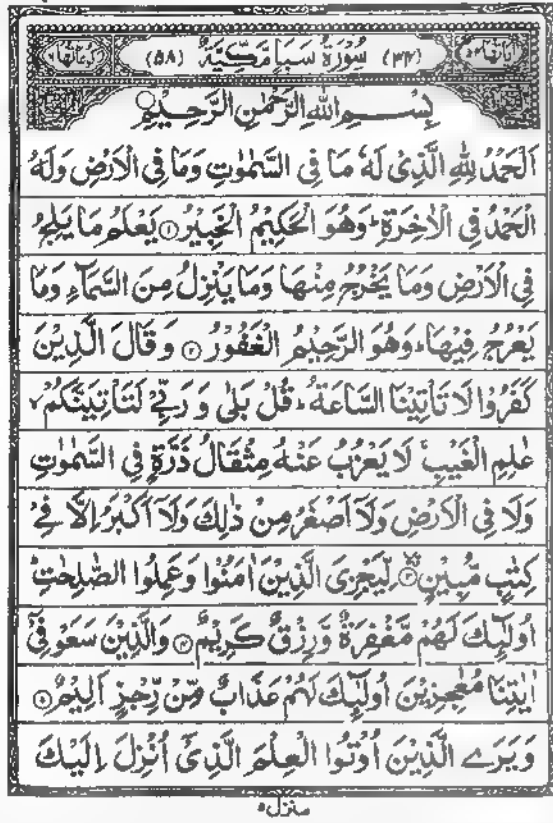 اٰيَاتُهَا ٥٤ (٣٤) سُوْرَةُ سَبَاٍ مَّكِّيَّةٌ (٥٨) رُكُوْعَاتُهَا ٦
بِسْمِ اللهِ الرَّحْمٰنِ الرَّحِيْمِ
اَلْحَمْدُ لِلّٰهِ الَّذِيْ لَهٗ مَا فِي السَّمٰوٰتِ وَمَا فِي الْاَرْضِ وَلَهُ
الْحَمْدُ فِي الْاٰخِرَةِ ؕ وَهُوَ الْحَكِيْمُ الْخَبِيْرُ ۝١ يَعْلَمُ مَا يَلِجُ
فِي الْاَرْضِ وَمَا يَخْرُجُ مِنْهَا وَمَا يَنْزِلُ مِنَ السَّمَآءِ وَمَا
يَعْرُجُ فِيْهَا ؕ وَهُوَ الرَّحِيْمُ الْغَفُوْرُ ۝٢ وَقَالَ الَّذِيْنَ
كَفَرُوْا لَا تَاْتِيْنَا السَّاعَةُ ؕ قُلْ بَلٰى وَرَبِّيْ لَتَاْتِيَنَّكُمْ ۙ
عٰلِمِ الْغَيْبِ ۚ لَا يَعْزُبُ عَنْهُ مِثْقَالُ ذَرَّةٍ فِي السَّمٰوٰتِ
وَلَا فِي الْاَرْضِ وَلَآ اَصْغَرُ مِنْ ذٰلِكَ وَلَآ اَكْبَرُ اِلَّا فِيْ
كِتٰبٍ مُّبِيْنٍ ۝٣ لِّيَجْزِيَ الَّذِيْنَ اٰمَنُوْا وَعَمِلُوا الصّٰلِحٰتِ ؕ
اُولٰٓئِكَ لَهُمْ مَّغْفِرَةٌ وَّرِزْقٌ كَرِيْمٌ ۝٤ وَالَّذِيْنَ سَعَوْ فِيْٓ
اٰيٰتِنَا مُعٰجِزِيْنَ اُولٰٓئِكَ لَهُمْ عَذَابٌ مِّنْ رِّجْزٍ اَلِيْمٌ ۝٥
وَيَرَى الَّذِيْنَ اُوْتُوا الْعِلْمَ الَّذِيْٓ اُنْزِلَ اِلَيْكَ
منزل ٥